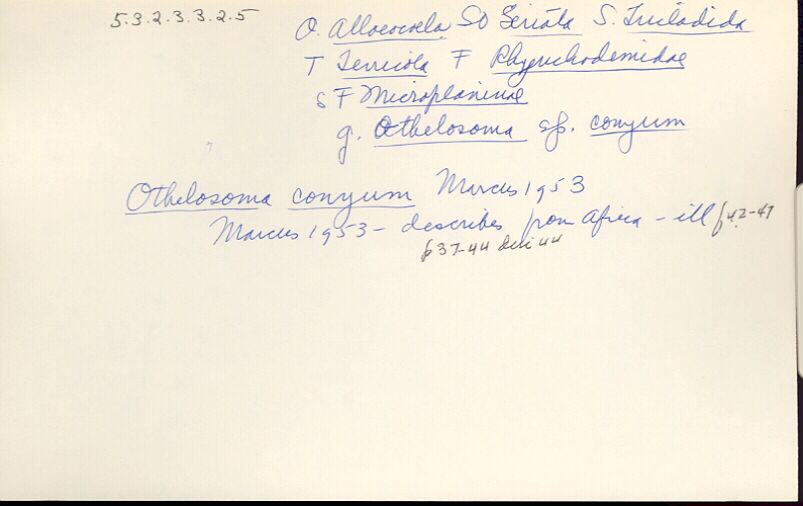 5.3.2.3.3.2.5
O. Alloeocoela SO Seriata S. Tricladida
T Terricola F Rhynchodemidae
SF Microplaninae
g. Othelosoma sp. conyum
Othelosoma conyum Marcus 1953
Marcus 1953 - describes from Africa - ill f 42-47
p 37-44 44